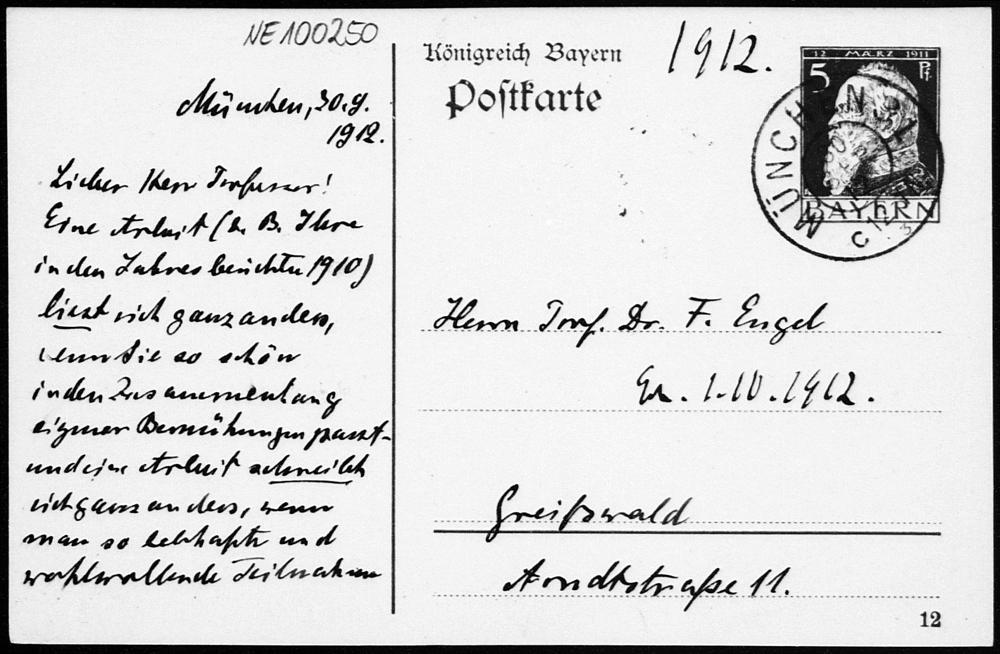 NE100250
München, 30.9.
1912.
Lieber Herr Professor!
Eine Arbeit (z. B. Ihre
in den Jahresberichten 1910)
liest sich ganz anders,
wenn sie so schön
in den Zusammenhang
eigener Bemühungen passt –
und eine Arbeit schreibt
sich ganz anders, wenn
man so lebhafte und
wohlwollende Teilnahme
Königreich Bayern
Postkarte
1912.
12 MÄRZ 1911
5 Pf.
BAYERN
MÜNCHEN
Herrn Prof. Dr. F. Engel
1.10.1912.
Greifswald
Arndtstraße 11.
12